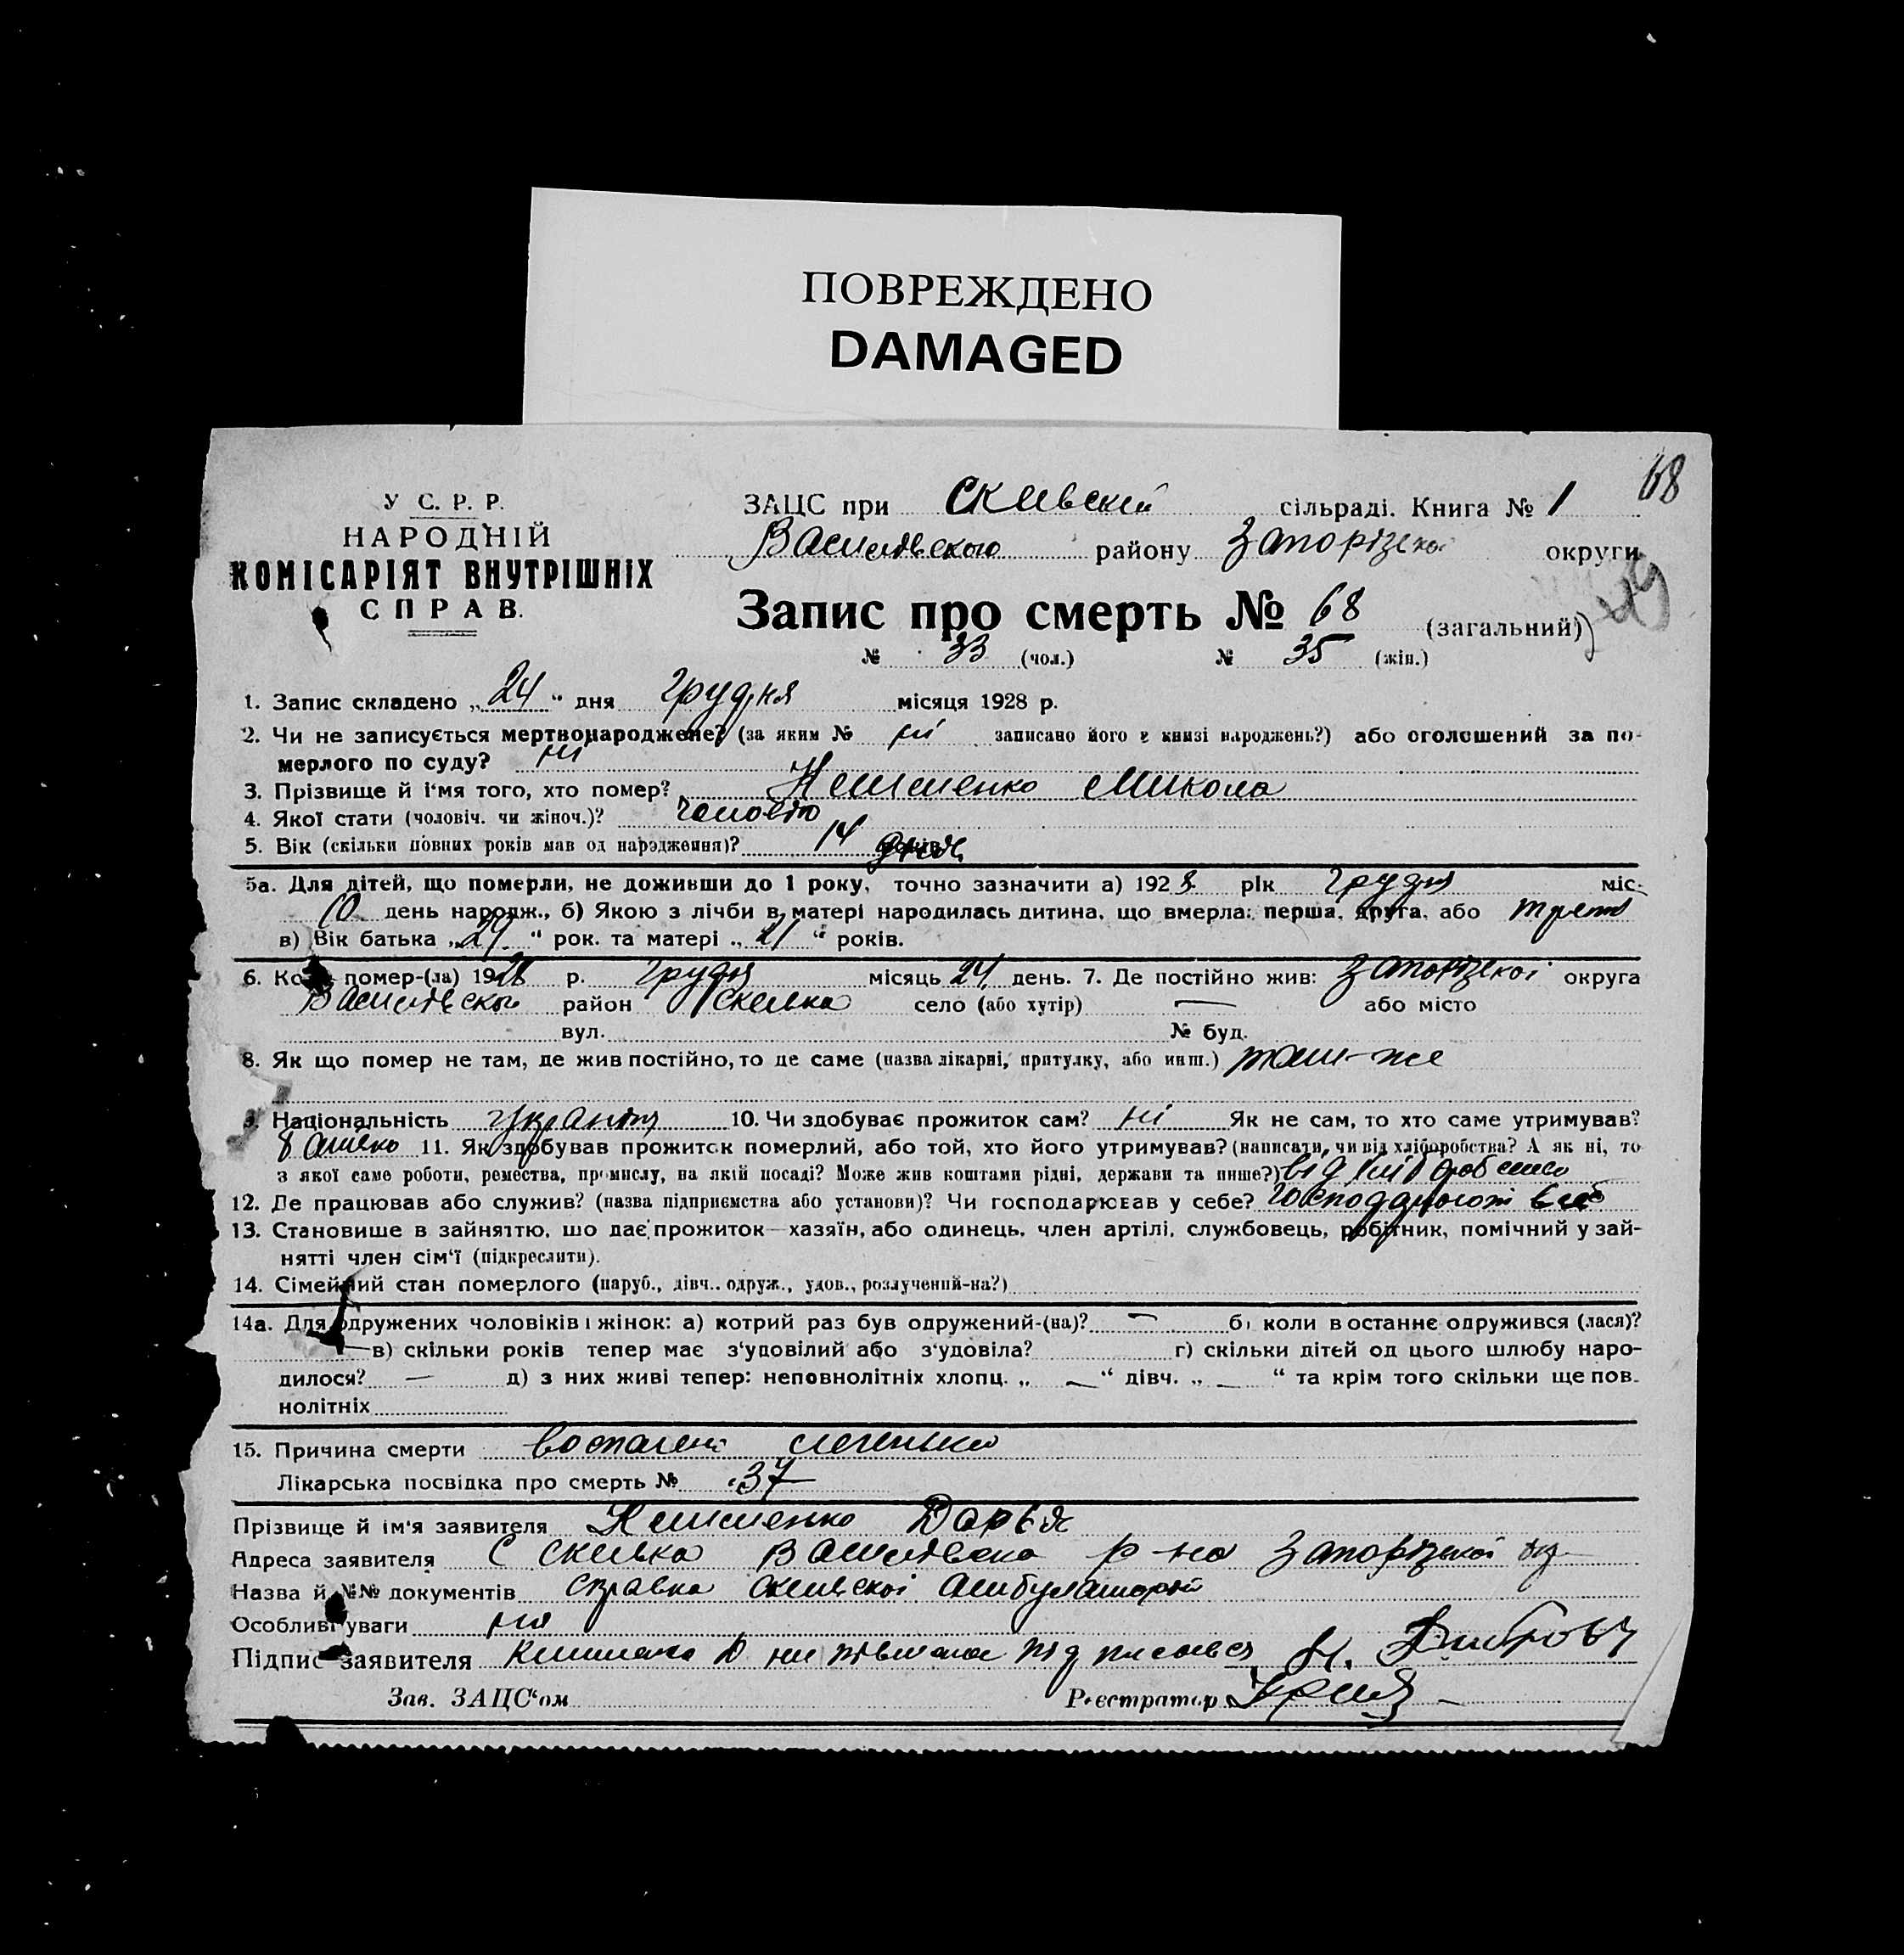 ПОВРЕЖДЕНО
DAMAGED
68
У С. Р. Р.
НАРОДНІЙ
КОМІСАРІЯТ ВНУТРІШНІХ
СПРАВ.
ЗАЦС при Скивский сільраді. Книга № 1
Василівского району Запорізької округи
Запис про смерть № 68 (загальний)
№ 33 (чол.) № 35 (жін.)
1. Запис складено „24“ дня грудня місяця 1928 р.
2. Чи не записується мертвонароджене? (за яким № ні записано його в книзі народжень?) або оголошений за по-
мерлого по суду? ні
3. Прізвище й і'мя того, хто помер? Микола
4. Якої стати (чоловіч. чи жіноч.)?
5. Вік (скільки повних років мав од народження)? 14 днів
5а. Для дітей, що померли, не доживши до 1 року, точно зазначити а) 1928 рік грудня міс.
10 день народж., б) Якою з лічби в матері народилась дитина, що вмерла: перша, друга, або
в) Вік батька „27“ рок. та матері „21“ років.
6. помер-(ла) 1928 р. грудня місяць 24 день. 7. Де постійно жив: Запорізької округа
район Скелька село (або хутір) — або місто
вул. № буд.
8. Як що помер не там, де жив постійно, то де саме (назва лікарні, притулку, або инш.) там-же
9. Національність 10. Чи здобуває прожиток сам? ні Як не сам, то хто саме утримував?
11. Як здобував прожиток померлий, або той, хто його утримував? (написати, чи від хліборобства? А як ні, то
з якої саме роботи, ремества, промислу, на якій посаді? Може жив коштами рідні, держави та инше?) від
12. Де працював або служив? (назва підприємства або установи)? Чи господарював у себе?
13. Становище в зайняттю, що дає прожиток—хазяїн, або одинець, член артілі, службовець, робітник, помічний у зай-
нятті член сім'ї (підкреслити).
14. Сімейний стан померлого (паруб., дівч.. одруж., удов., розлучений-на?)
14а. Для одружених чоловіків і жінок: а) котрий раз був одружений-(на)? — б) коли востанне одружився (лася)?
— в) скільки років тепер має з'удовілий або з'удовіла? г) скільки дітей од цього шлюбу наро-
дилося? — д) з них живі тепер: неповнолітніх хлопц. „ — “ дівч. „ — “ та крім того скільки ще пов-
нолітніх
15. Причина смерти
Лікарська посвідка про смерть № 37
Прізвище й ім'я заявителя Дарья
Адреса заявителя С Скелька р-на Запорізької
Назва й №№ документів справка амбулаторій
Особливі уваги
Підпис заявителя
Зав. ЗАЦС'ом Реєстратор